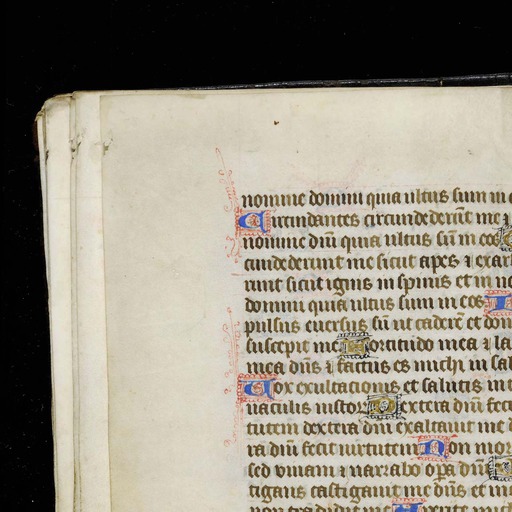 nomine domini quia ultus sum in e
Circundantes circumdederūt me ⁊
nomine dn̄i quia ultus sū in eos
cundederunt me sicut apes ⁊ exar
runt sicut ignis in spinis et in no
domini quia ultus sum in eos I
pulsus euersus sū ut caderē et dom
suscepit me Fortitudo mea ⁊ la
mea dn̄s ⁊ factus es michi in sal
Vox exultacionis et salutis in t
naculis iustor Dextera dn̄i feci
tutem dextera dn̄i exaltauit me d
ra dn̄i fecit uirtutem Non mor
sed viuam ⁊ narrabo oꝑa dn̄i
tigans castigauit me dn̄s et in
non tradidit me